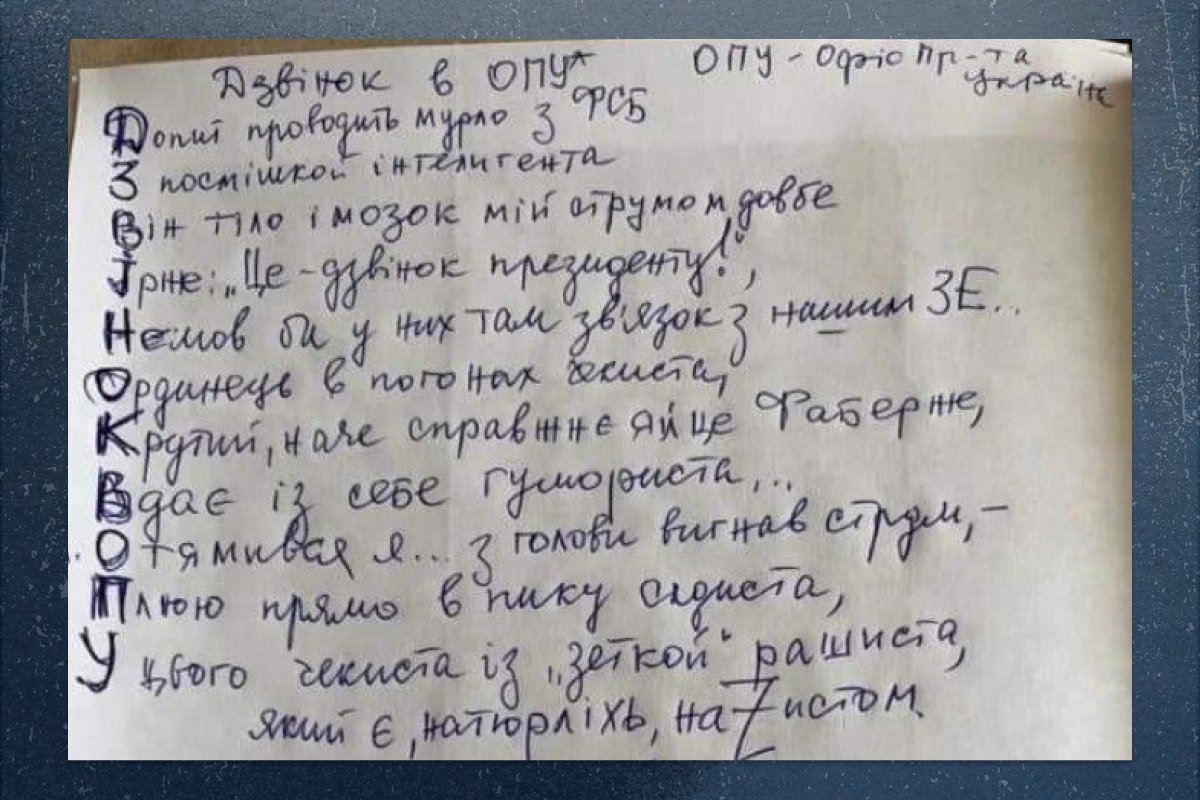 Дзвінок в ОПУ* ОПУ - Офіс Пр-та Україне
Допит проводить мурло з ФСБ
З посмішкой інтелигента
Він тіло і мозок мій струмом довбе
Ірже: „Це - дзвінок президенту!",
Немов би у них там зв'язок з нашим ЗЕ...
Ординець в погонах чекиста,
Крутий, наче справжнє яйце Фаберже,
Вдає із себе гумориста...
Отямився я... з голови вигнав струм, -
Плюю прямо в пику садиста,
У цього чекиста із „зеткой" рашиста,
який є, натюрліхь, наZистом.